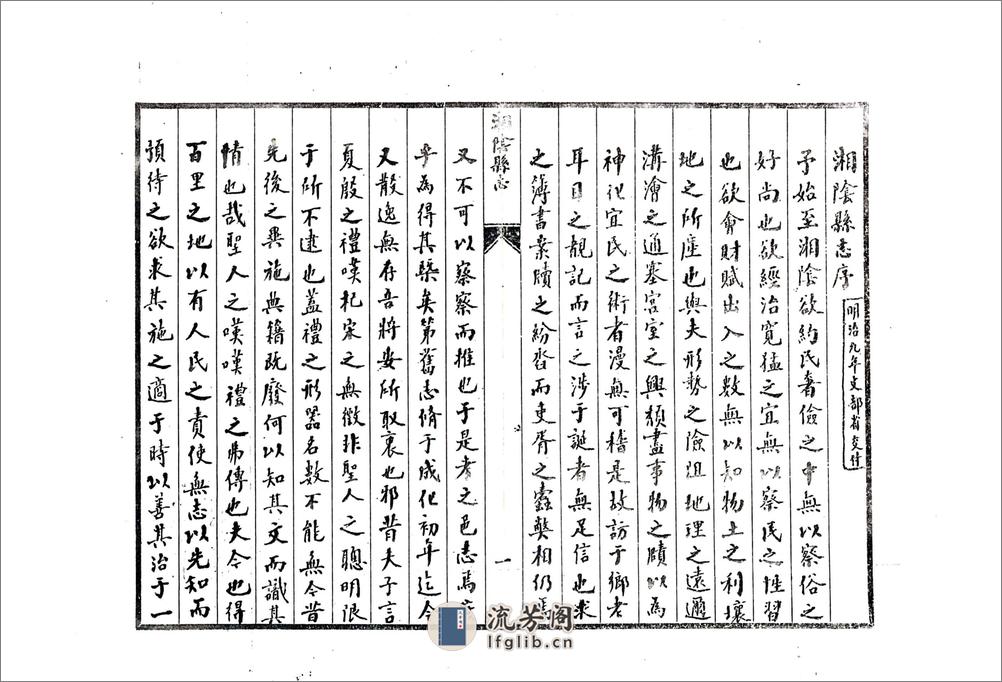 湘陰縣志序
明治九年文部省交付
予始至湘陰欲約民奢儉之中無以察俗之
好尚也欲經治寬猛之宜無以察民之性習
也欲會財賦出入之數無以知物土之利壤
地之所産也與夫形勢之險阻地理之遠邇
溝澮之通塞宮室之興頽盡事物之賾以為
神化宜民之術者漫無可稽是故訪于鄉老
耳目之覩記而言之涉于誕者無足信也求
之薄書案牘之紛沓而吏胥之蠹弊相仍焉
湘陰縣志
一
又不可以察察而推也于是考之邑志焉
乎為得其槩矣第舊志脩于成化初年迄今
又散逸無存吾將安所取衷也邪昔夫子言
夏殷之禮嘆杞宋之無徵非聖人之聰明限
于所不逮也蓋禮之形器名數不能無今昔
先後之異施典籍既廢何以知其文而識其
情也哉聖人之嘆嘆禮之弗傳也夫令也得
百里之地以有人民之責使無志以先知而
預待之欲求其施之適于時以善其治于一
流芳阁
lfglib.cn